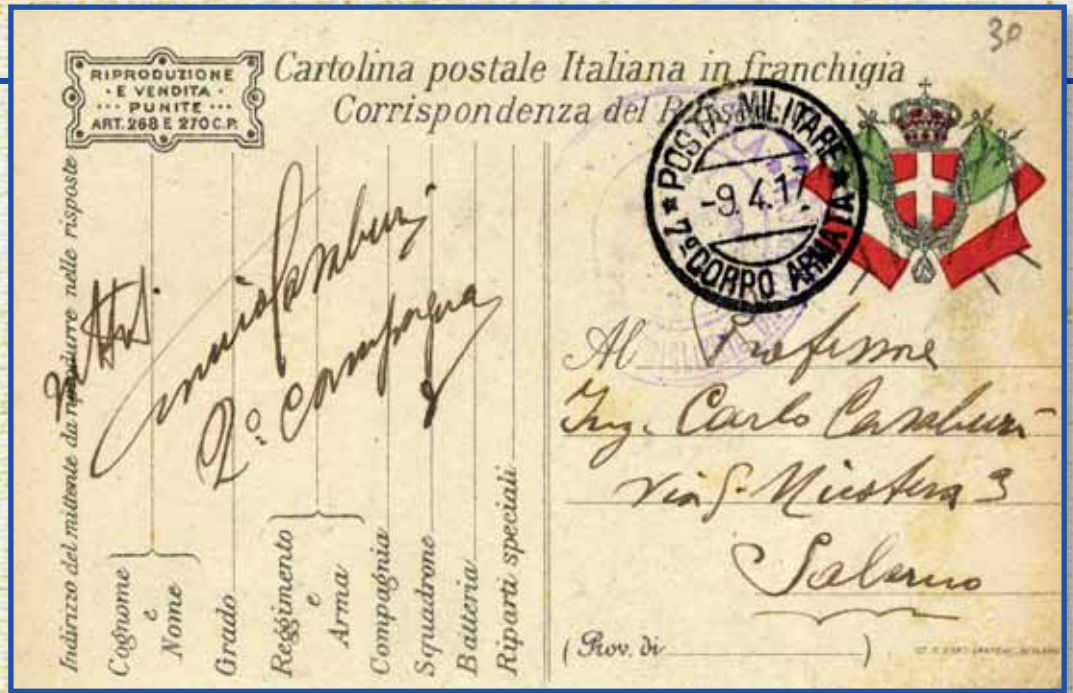 30
RIPRODUZIONE
· E VENDITA ·
··· PUNITE ···
ART. 268 E 270 C.P.
Cartolina postale Italiana in franchigia
Corrispondenza del R.
POSTA MILITARE
-9.4.17
7º CORPO ARMATA
Indirizzo del mittente da riprodurre nelle risposte
Casaburi
2º Compagnia
Cognome
e
Nome
Grado
Reggimento
e
Arma
Compagnia
Squadrone
Batteria
Riparti speciali
Al Professore
Ing. Carlo Casaburi
Via G. Nicotera 3
Salerno
(Prov. di )